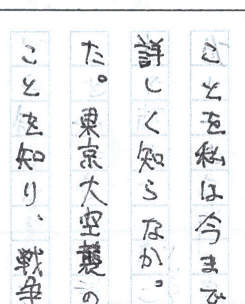 ことを私は今まで
詳しく知らなかっ
た。東京大空襲の
ことを知り、戦争